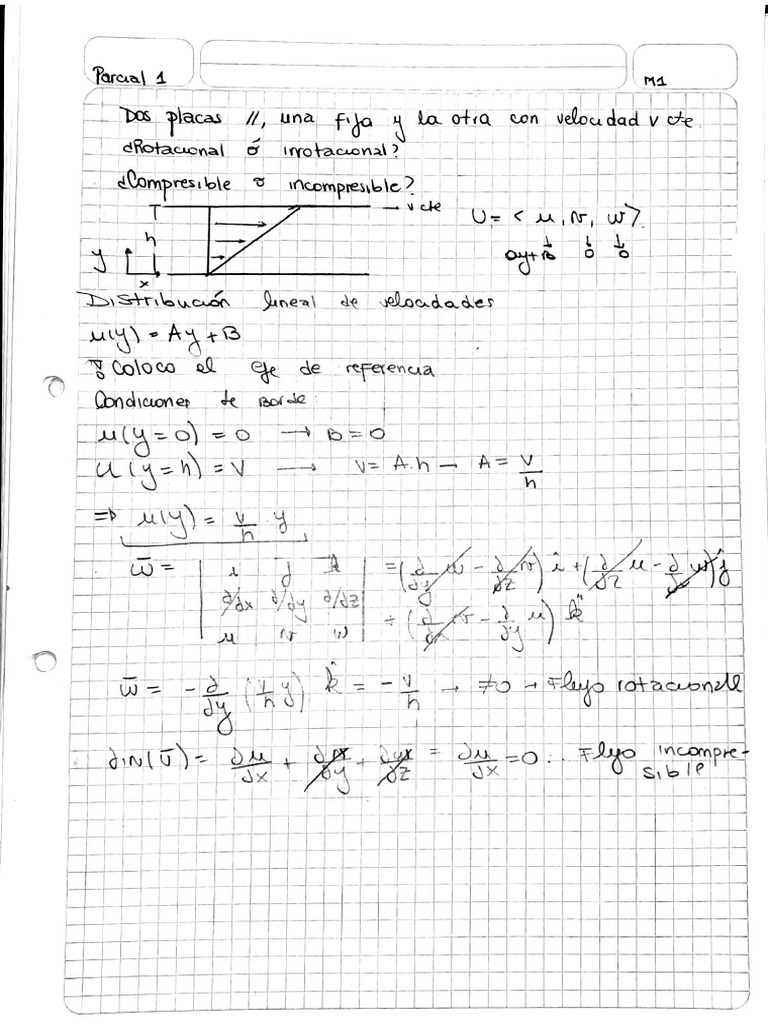 Parcial 1
M1
Dos placas //, una fija y la otra con velocidad v cte.
¿Rotacional ó irrotacional?
¿Compresible o incompresible?
v cte
U = < u, v, w >
ay+B 0 0
h
y
x
Distribución lineal de velocidades
u(y) = Ay + B
Coloco el eje de referencia
Condiciones de Borde:
u(y=0) = 0 → B=0
u(y=h) = V → V= A.h → A = V/h
⇒ u(y) = V/h y
ω̄ = | i j k | = (∂/∂y w - ∂/∂z v) i + (∂/∂z u - ∂/∂x w) ĵ
∂/∂x ∂/∂y ∂/∂z + (∂/∂x v - ∂/∂y u) k̂
u v w
ω̄ = -∂/∂y (V/h y) k̂ = -V/h → ≠0 → Flujo rotacional
div(Ū) = ∂u/∂x + ∂v/∂y + ∂w/∂z = ∂u/∂x = 0 ∴ Flujo incompre-
sible